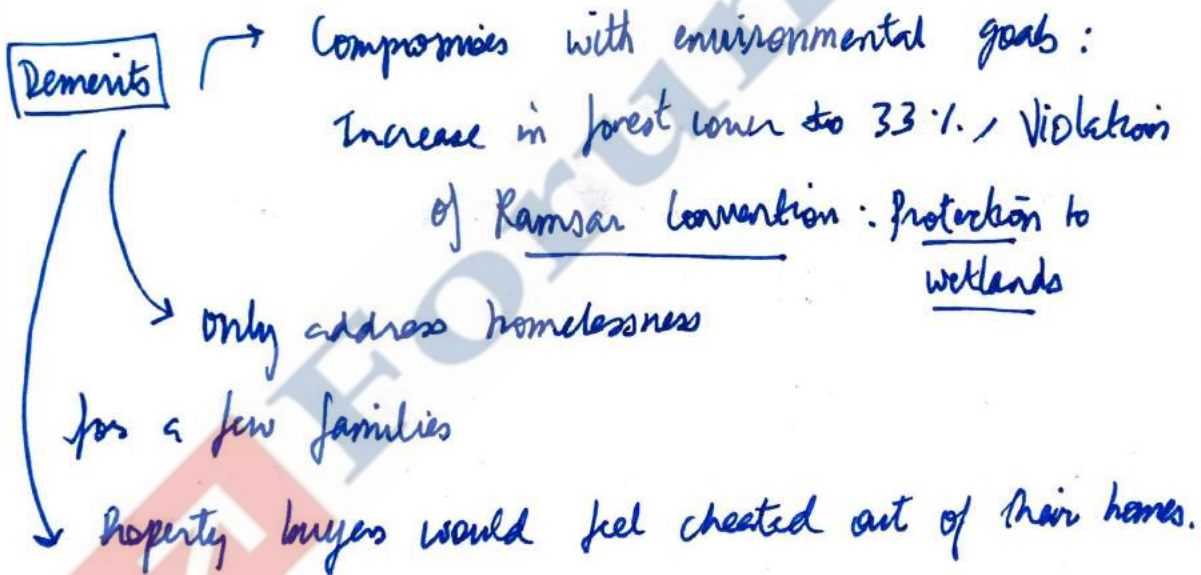 Demerits → Compromises with environmental goals :
Increase in forest cover to 33 %, Violation
of Ramsar Convention : Protection to
wetlands
→ only address homelessness
for a few families
→ Property buyers would feel cheated out of their homes.
Forum